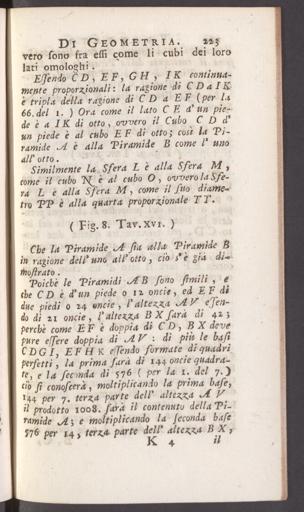 DI GEOMETRIA. 223
vero sono fra essi come li cubi dei loro
lati omologhi.
Essendo CD, EF, GH, IK continua-
mente proporzionali: la ragione di CD a IK
è tripla della ragione di CD a EF (per la
66. del 1.) Ora come il lato CE d' un pie-
de è a IK di otto, ovvero il Cubo CD d'
un piede è al cubo EF di otto; così la Pi-
ramide A è alla Piramide B come l' uno
all' otto.
Similmente la Sfera L è alla Sfera M,
come il cubo N è al cubo O, ovvero la Sfe-
ra L è alla Sfera M, come il suo diame-
tro PP è alla quarta proporzionale TT.
( Fig. 8. Tav. XVI. )
Che la Piramide A sia alla Piramide B
in ragione dell' uno all' otto, ciò s' è già di-
mostrato.
Poichè le Piramidi AB sono simili, e
che CD è d' un piede o 12 oncie, ed EF di
due piedi o 24 oncie, l' altezza AV essen-
do di 21 oncie, l' altezza BX sarà di 42;
perchè come EF è doppia di CD, BX deve
pure essere doppia di AV: di più le basi
CDGI, EFHK essendo formate di quadri
perfetti, la prima sarà di 144 oncie quadra-
te, e la seconda di 576 ( per la 1. del 7. )
ciò si conoscerà, moltiplicando la prima base,
144 per 7. terza parte dell' altezza AV
il prodotto 1008. sarà il contenuto della Pi-
ramide A; e moltiplicando la seconda base
576 per 14, terza parte dell' altezza BX,
K 4 il